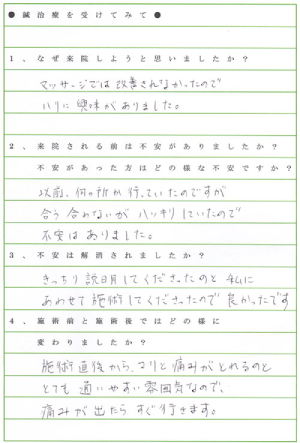 ●鍼治療を受けてみて●
1、なぜ来院しようと思いましたか？
マッサージでは改善されなかったので
ハリに興味がありました。
2、来院される前は不安がありましたか？
不安があった方はどの様な不安ですか？
以前、何ヶ所か行っていたのですが
合う合わないがハッキリしていたので
不安はありました。
3、不安は解消されましたか？
きっちり説明してくださったのと私に
あわせて施術してくださったので良かったです
4、施術前と施術後ではどの様に
変わりましたか？
施術直後から、コリと痛みがとれるのと
とても通いやすい雰囲気なので、
痛みが出たらすぐ行きます。